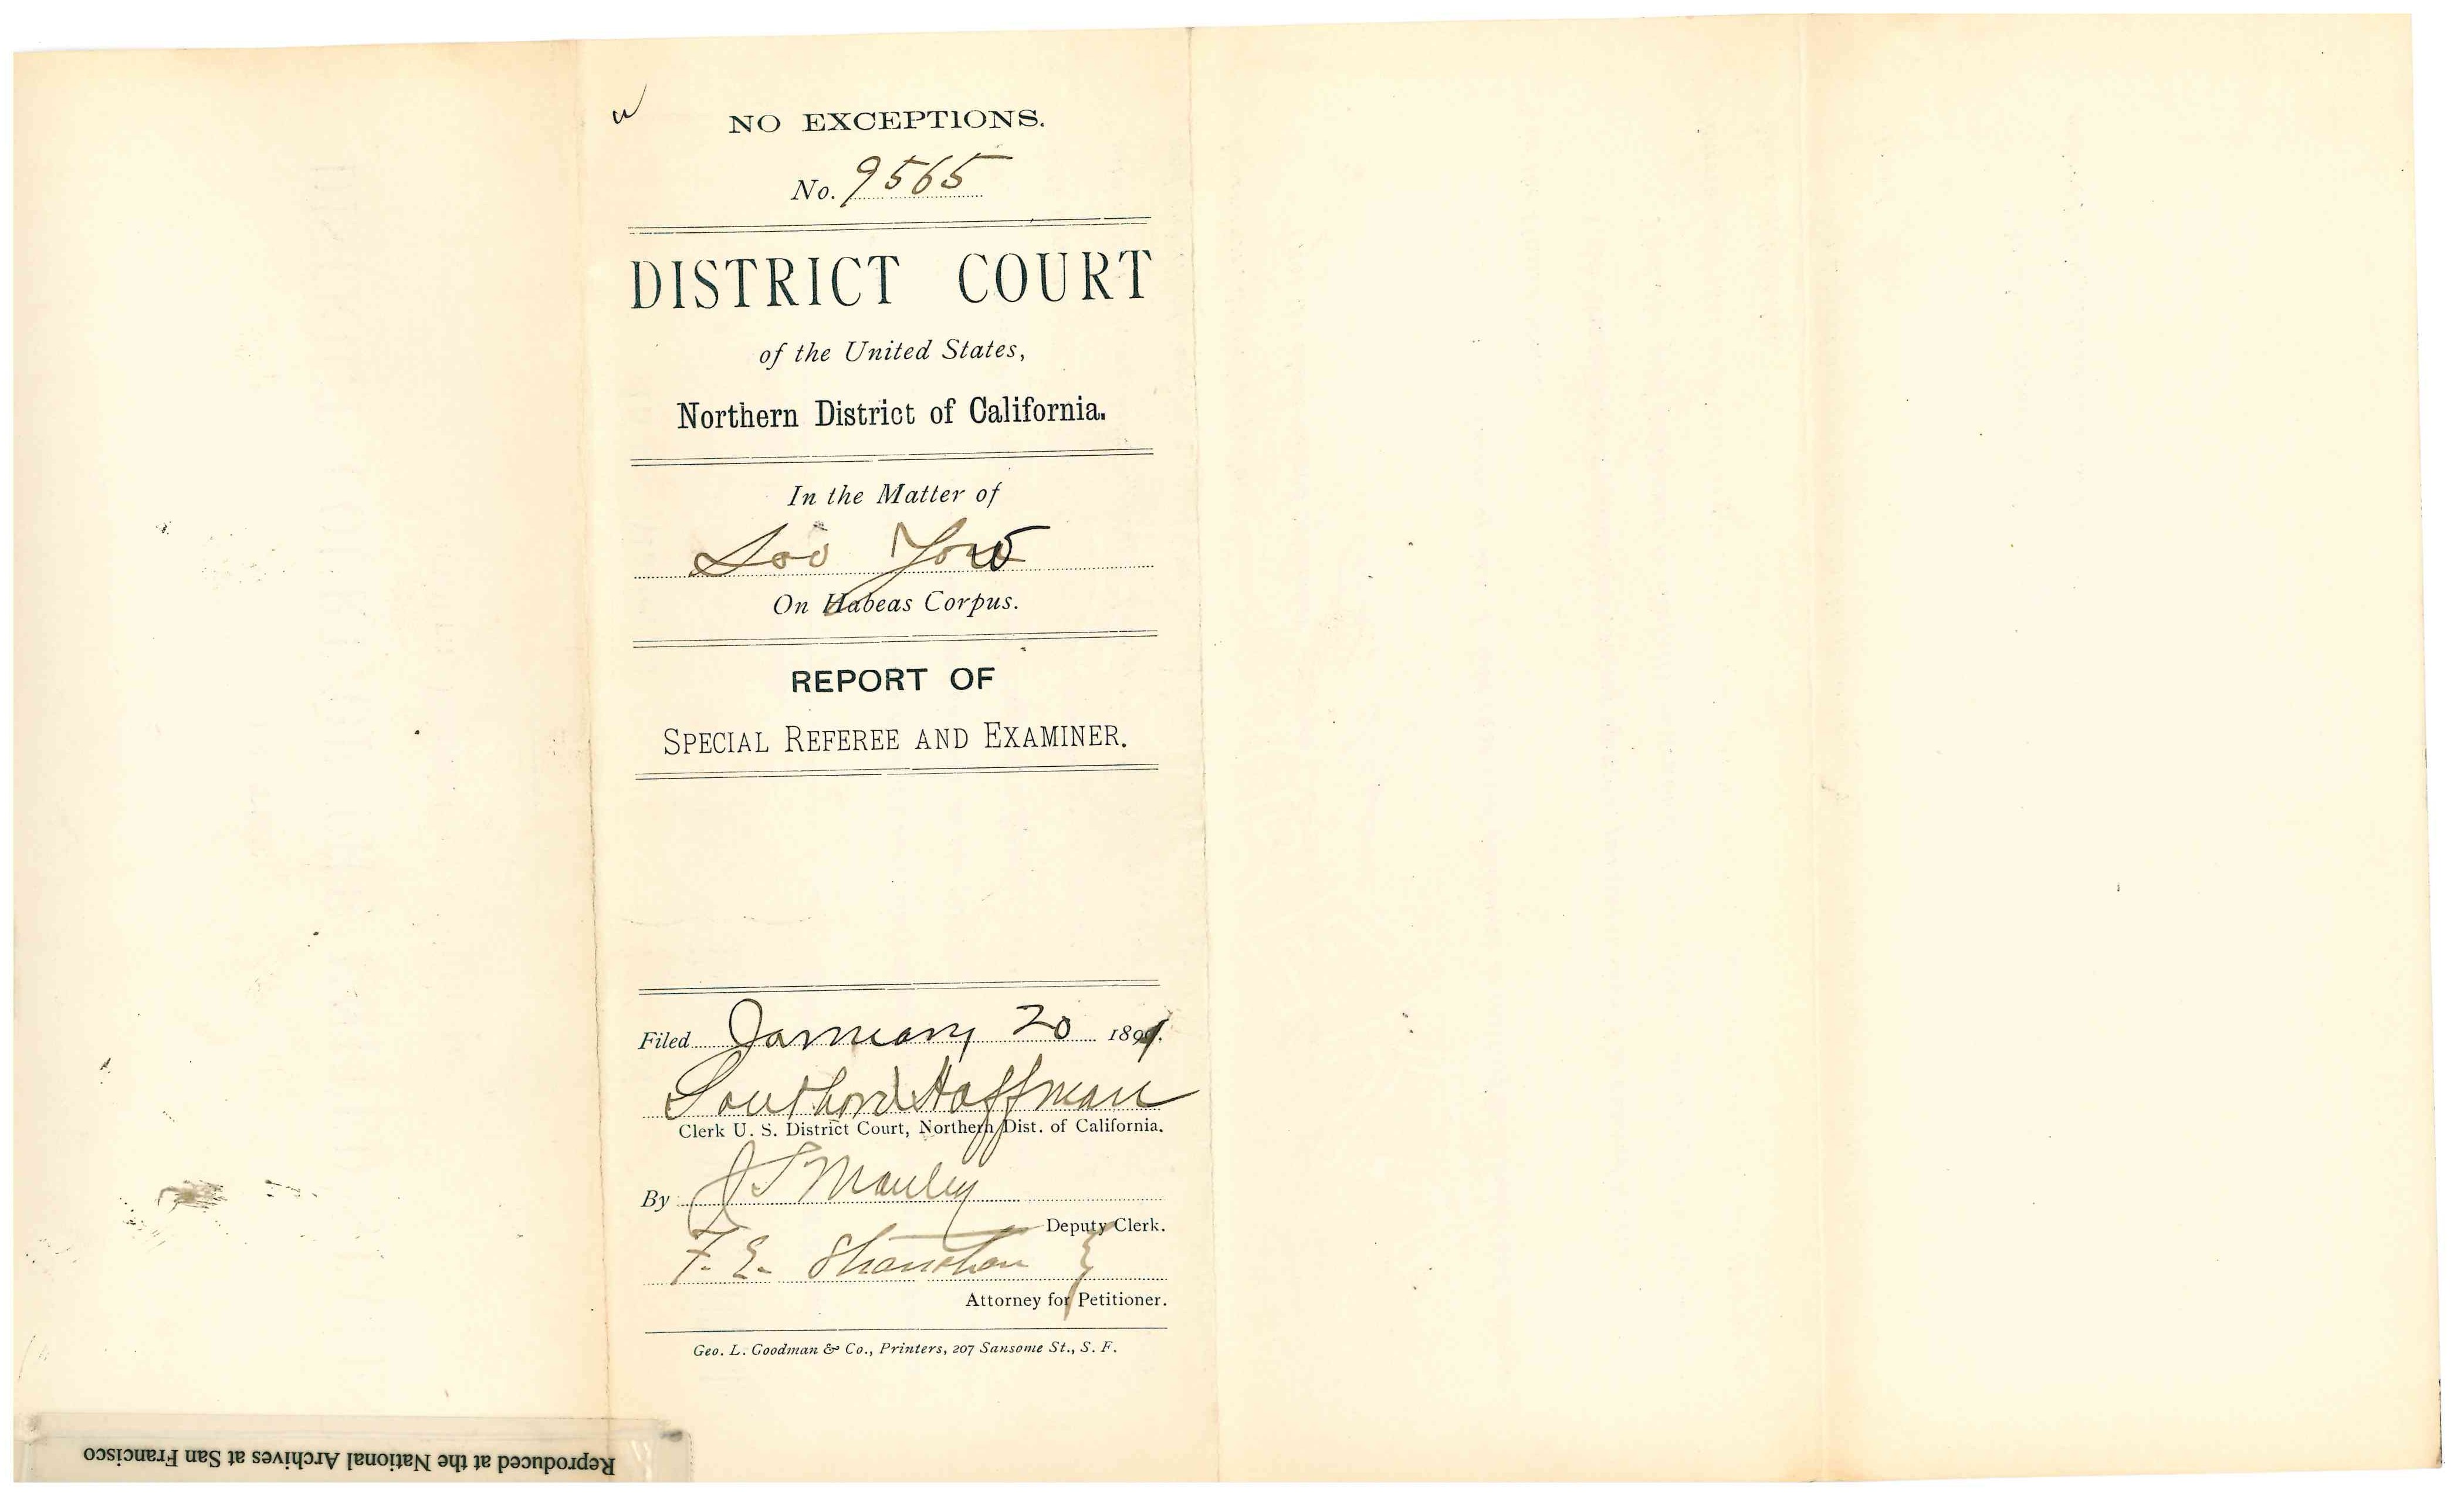 NO EXCEPTIONS.
No. 9565
DISTRICT COURT
of the United States,
Northern District of California.
In the Matter of
Soo Yow
On Habeas Corpus.
REPORT OF
SPECIAL REFEREE AND EXAMINER.
Filed January 20 1891.
Southard Hoffman
Clerk U. S. District Court, Northern Dist. of California.
By J S Manley
Deputy Clerk.
F. E.
Attorney for Petitioner.
Geo. L. Goodman & Co., Printers, 207 Sansome St., S. F.
Reproduced at the National Archives at San Francisco